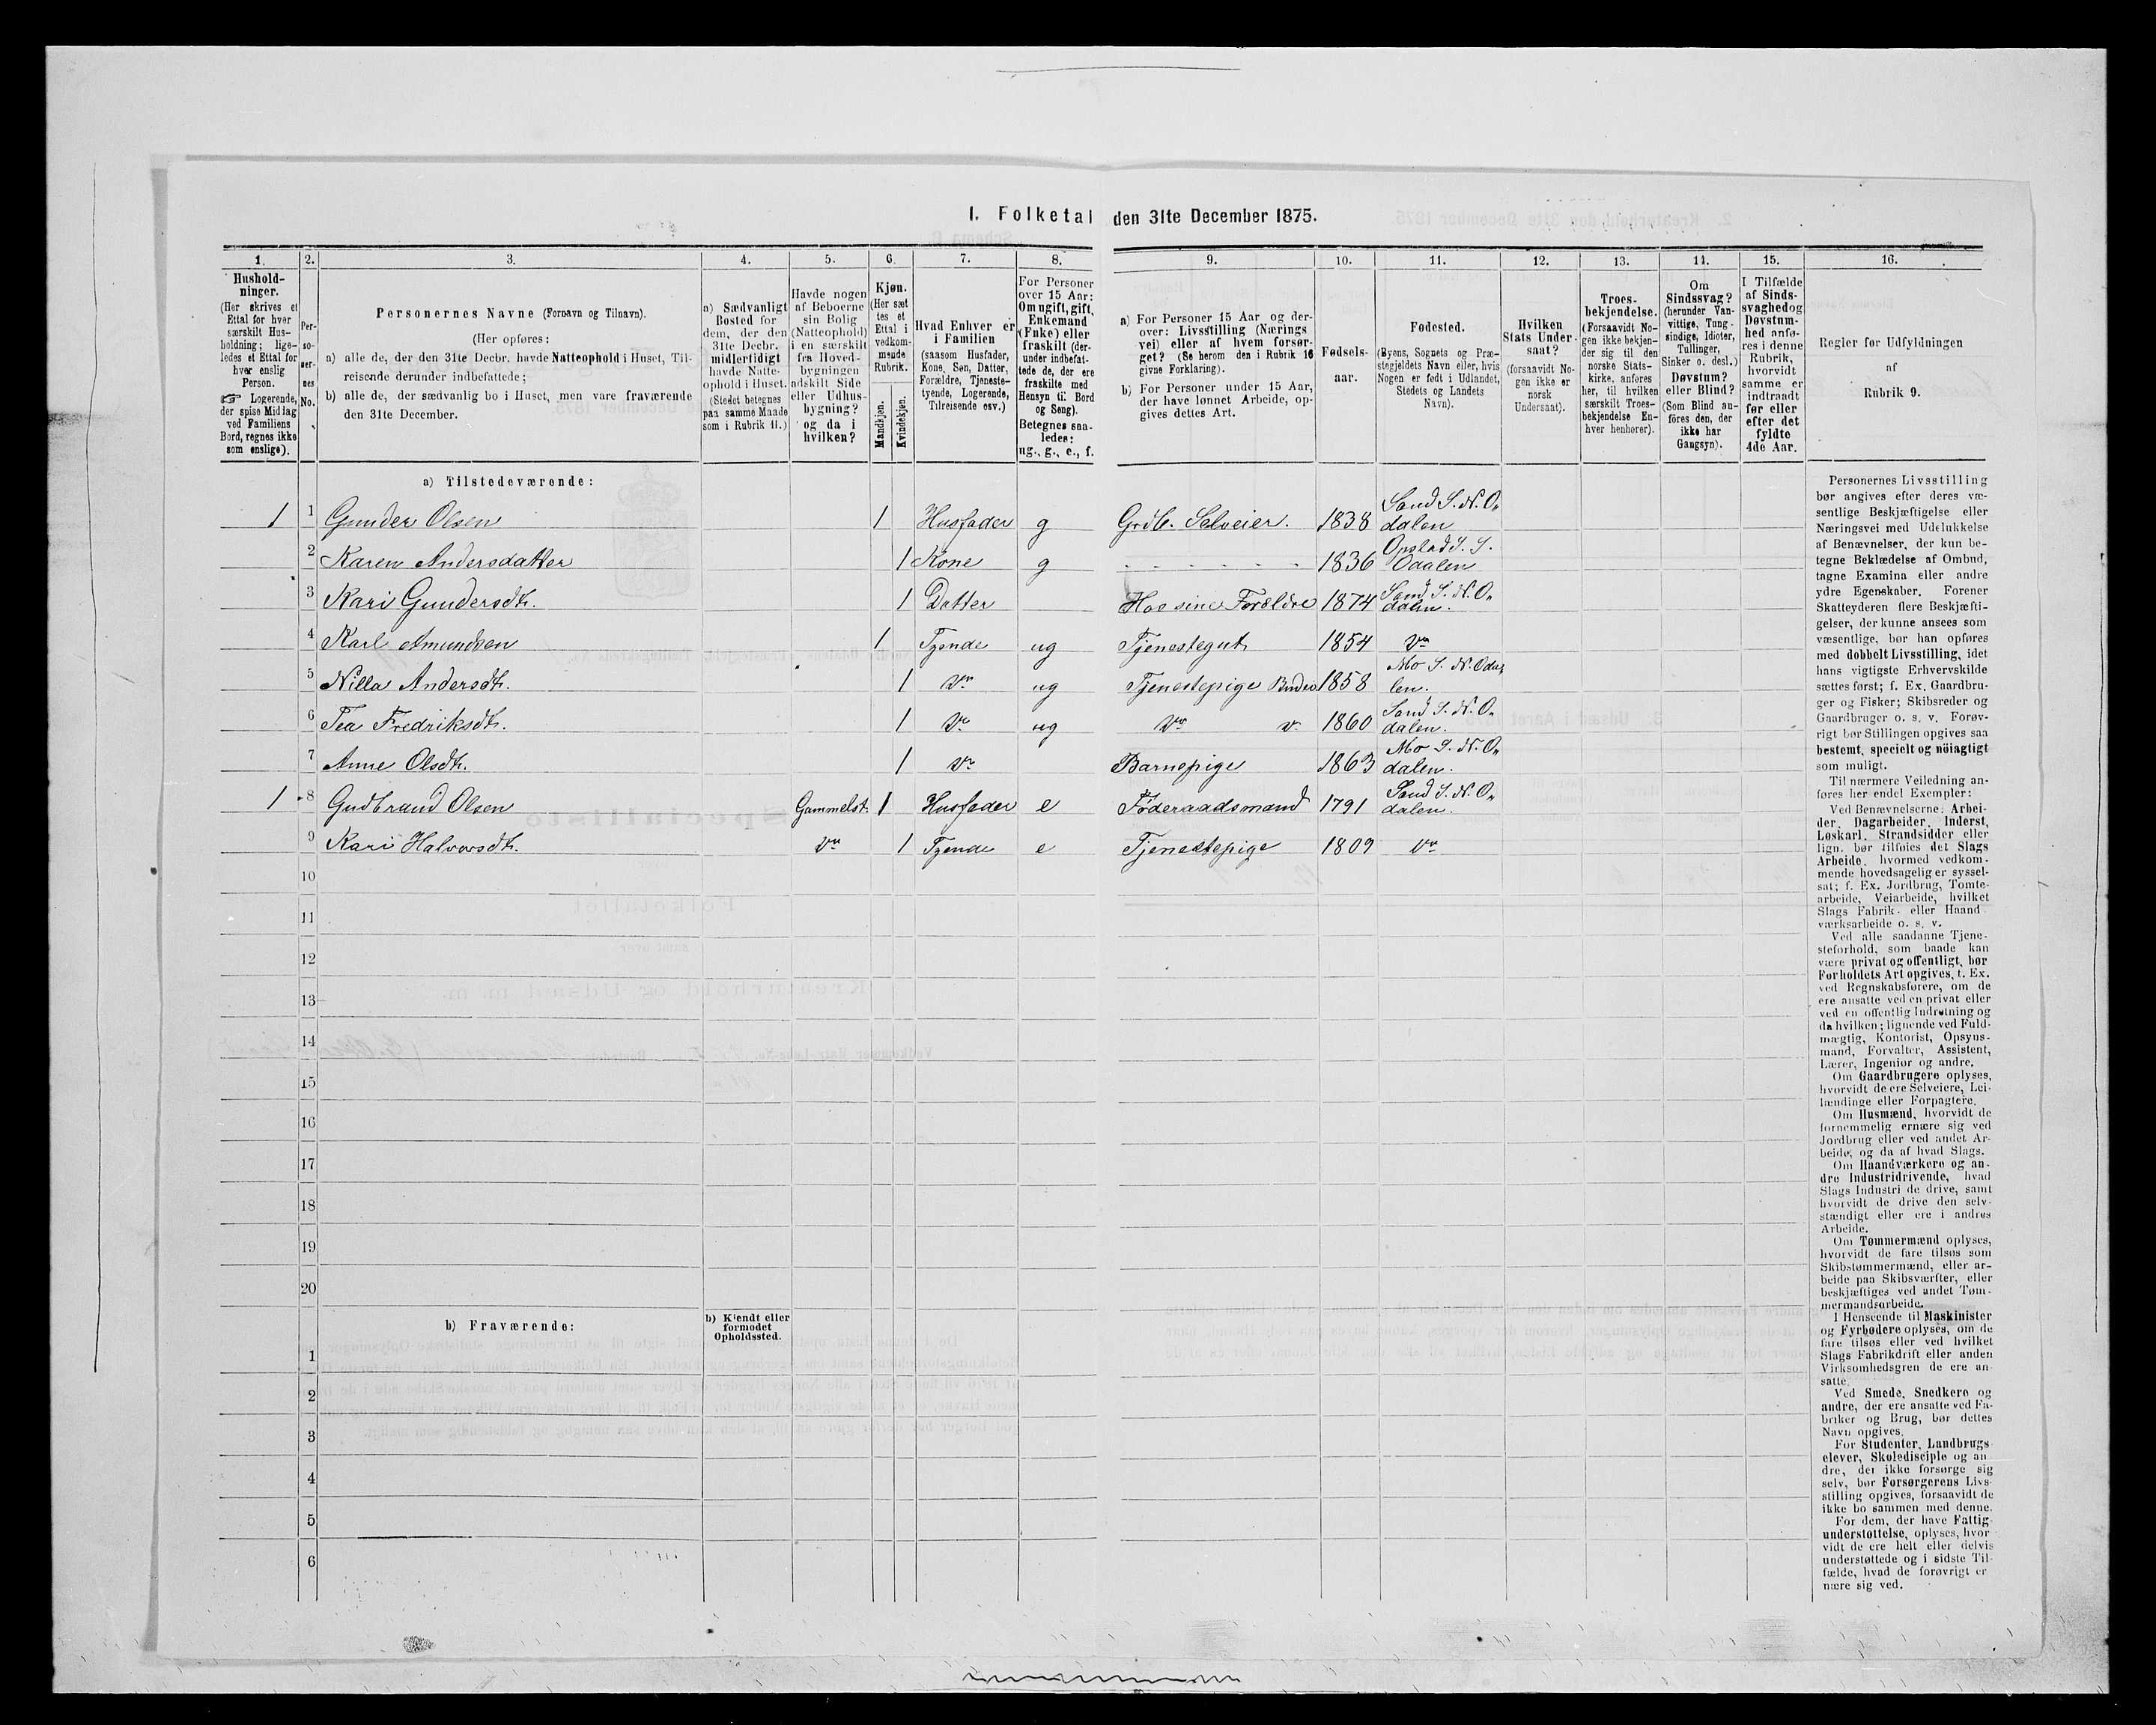 1. Folketal den 31te December 1875.
1. 2. 3. 4. 5. 6. 7. 8. 9. 10. 11. 12. 13. 14. 15. 16.
Hushold-
ninger.
(Her skrives et
Ettal for hver
særskilt Hus-
holdning; lige-
ledes et Ettal for
hver enslig
Person.
☞ Logerende,
der spise Middag
ved Familiens
Bord, regnes ikke
som enslige).
Per-
so-
ner-
nes
No.
Personernes Navne (Fornavn og Tilnavn).
(Her opføres:
a) alle de, der den 31te Decbr. havde Natteophold i Huset, Til-
reisende derunder indbefattede;
b) alle de, der sædvanlig bo i Huset, men vare fraværende
den 31te December.
a) Sædvanligt
Bosted for
dem, der den
31te Decbr.
midlertidigt
havde Natte-
ophold i Huset.
(Stedet betegnes
paa samme Maade
som i Rubrik 11.)
Havde nogen
af Beboerne
sin Bolig
(Natteophold)
i en særskilt
fra Hoved-
bygningen
adskilt Side
eller Udhus-
bygning?
og da i
hvilken?
Kjøn.
(Her sæt
tes et
Ettal i
vedkom-
mende
Rubrik.
Mandkjøn.
Kvindekjøn.
Hvad Enhver er
i Familien
(saasom Husfader,
Kone, Søn, Datter,
Forældre, Tjeneste-
tyende, Logerende,
Tilreisende osv.)
For Personer
over 15 Aar:
Om ugift, gift,
Enkemand
(Enke) eller
fraskilt (der-
under indbefat-
tede de, der ere
fraskilte med
Hensyn til Bord
og Seng).
Betegnes saa-
ledes:
ug., g., e., f.
a) For Personer 15 Aar og der-
over: Livsstilling (Nærings
vei) eller af hvem forsør-
get? (Se herom den i Rubrik 16
givne Forklaring).
b) For Personer under 15 Aar,
der have lønnet Arbeide, op-
gives dettes Art.
Fødsels-
aar.
Fødested.
(Byens, Sognets og Præ-
stegjeldets Navn eller, hvis
Nogen er født i Udlandet,
Stedets og Landets
Navn).
Hvilken
Stats Under-
saat?
(forsaavidt No-
gen ikke er
norsk
Undersaat).
Troes-
bekjendelse.
(Forsaavidt No-
gen ikke bekjen-
der sig til den
norske Stats-
kirke, anføres
her, til hvilken
særskilt Troes-
bekjendelse En-
hver henhører).
Om
Sindssvag?
(herunder Van-
vittige, Tung-
sindige, Idioter,
Tullinger,
Sinker o. desl.)
Døvstum?
eller Blind?
(Som Blind an-
føres den, der
ikke har
Gangsyn).
I Tilfælde
af Sinds-
svaghed og
Døvstum-
hed anfø-
res i denne
Rubrik,
hvorvidt
samme er
indtraadt
før eller
efter det
fyldte
4de Aar.
Regler for Udfyldningen
af
Rubrik 9.
a) Tilstedeværende:
1 1 Gunder Olsen 1 Husfader g Grdb. Selveier. 1838 Sand S. N. O-
dalen
2 Karen Andersdatter 1 Kone g 1836 Opstad S. S.
Odalen
3 Kari Gundersdtr. 1 Datter Hos sine Forældre 1874 Sand S. N. O-
dalen.
4 Karl Amundsen 1 Tyende ug Tjenestegut 1854 do
5 Nilla Andersdtr. 1 do ug Tjenestepige Budeie 1858 Mo S. N. Oda-
len.
6 Tea Fredriksdtr. 1 do ug do do 1860 Sand S. N. O-
dalen.
7 Anne Olsdtr. 1 do Barnepige 1863 Mo S. N. O-
dalen.
1 8 Gudbrand Olsen Gammelst. 1 Husfader e Føderaadsmand 1791 Sand S. N. O-
dalen.
9 Kari Halvorsdtr. do 1 Tyende e Tjenestepige 1809 do
10
11
12
13
14
15
16
17
18
19
20
b) Fraværende:
b) Kjendt eller
formodet
Opholdssted.
1
2
3
4
5
6
Personernes Livsstilling
bør angives efter deres væ-
sentlige Beskjæftigelse eller
Næringsvei med Udelukkelse
af Benævnelser, der kun be-
tegne Beklædelse af Ombud,
tagne Examina eller andre
ydre Egenskaber. Forener
Skatteyderen flere Beskjæfti-
gelser, der kunne ansees som
væsentlige, bør han opføres
med dobbelt Livsstilling, idet
hans vigtigste Erhvervskilde
sættes først; f. Ex. Gaardbru-
ger og Fisker; Skibsreder og
Gaardbruger o. s. v. Forøv-
rigt bør Stillingen opgives saa
bestemt, specielt og nöiagtigt
som muligt.
Til nærmere Veiledning an-
føres her endel Exempler:
Ved Benævnelserne: Arbei-
der, Dagarbeider, Inderst,
Løskarl, Strandsidder eller
lign. bør tilføies det Slags
Arbeide, hvormed vedkom-
mende hovedsagelig er syssel-
sat; f. Ex. Jordbrug, Tomte-
arbeide, Veiarbeide, hvilket
Slags Fabrik- eller Haand-
værksarbeide o. s. v.
Ved alle saadanne Tjene-
steforhold, som baade kan
være privat og offentligt, bør
Forholdets Art opgives, t. Ex.
ved Regnskabsførere, om de
ere ansatte ved en privat eller
ved en offentlig Indretning og
da hvilken; lignende ved Fuld-
mægtig, Kontorist, Opsyns-
mand, Forvalter, Assistent,
Lærer, Ingeniør og andre.
Om Gaardbrugere oplyses,
hvorvidt de ere Selveiere, Lei-
lændinge eller Forpagtere.
Om Husmænd, hvorvidt de
fornemmelig ernære sig ved
Jordbrug eller ved andet Ar-
beide, og da af hvad Slags.
Om Haandværkere og an-
dre Industridrivende, hvad
Slags Industri de drive, samt
hvorvidt de drive den selv-
stændigt eller ere i andres
Arbeide.
Om Tømmermænd oplyses,
hvorvidt de fare tilsøs som
Skibstømmermænd, eller ar-
beide paa Skibsværfter, eller
beskjæftiges ved andet Tøm-
mermandsarbeide.
I Henseende til Maskinister
og Fyrbødere oplyses, om de
fare tilsøs eller ved hvilket
Slags Fabrikdrift eller anden
Virksomhedsgren de ere an-
satte.
Ved Smede, Snedkere og
andre, der ere ansatte ved Fa-
briker og Brug, bør dettes
Navn opgives.
For Studenter, Landbrugs-
elever, Skoledisciple og an-
dre, der ikke forsørge sig
selv, bør Forsørgerens Livs-
stilling opgives, forsaavidt de
ikke bo sammen med denne.
For dem, der have Fattig-
understøttelse, oplyses, hvor-
vidt de ere helt eller delvis
understøttede og i sidste Til-
fælde, hvad de forøvrigt er-
nære sig ved.